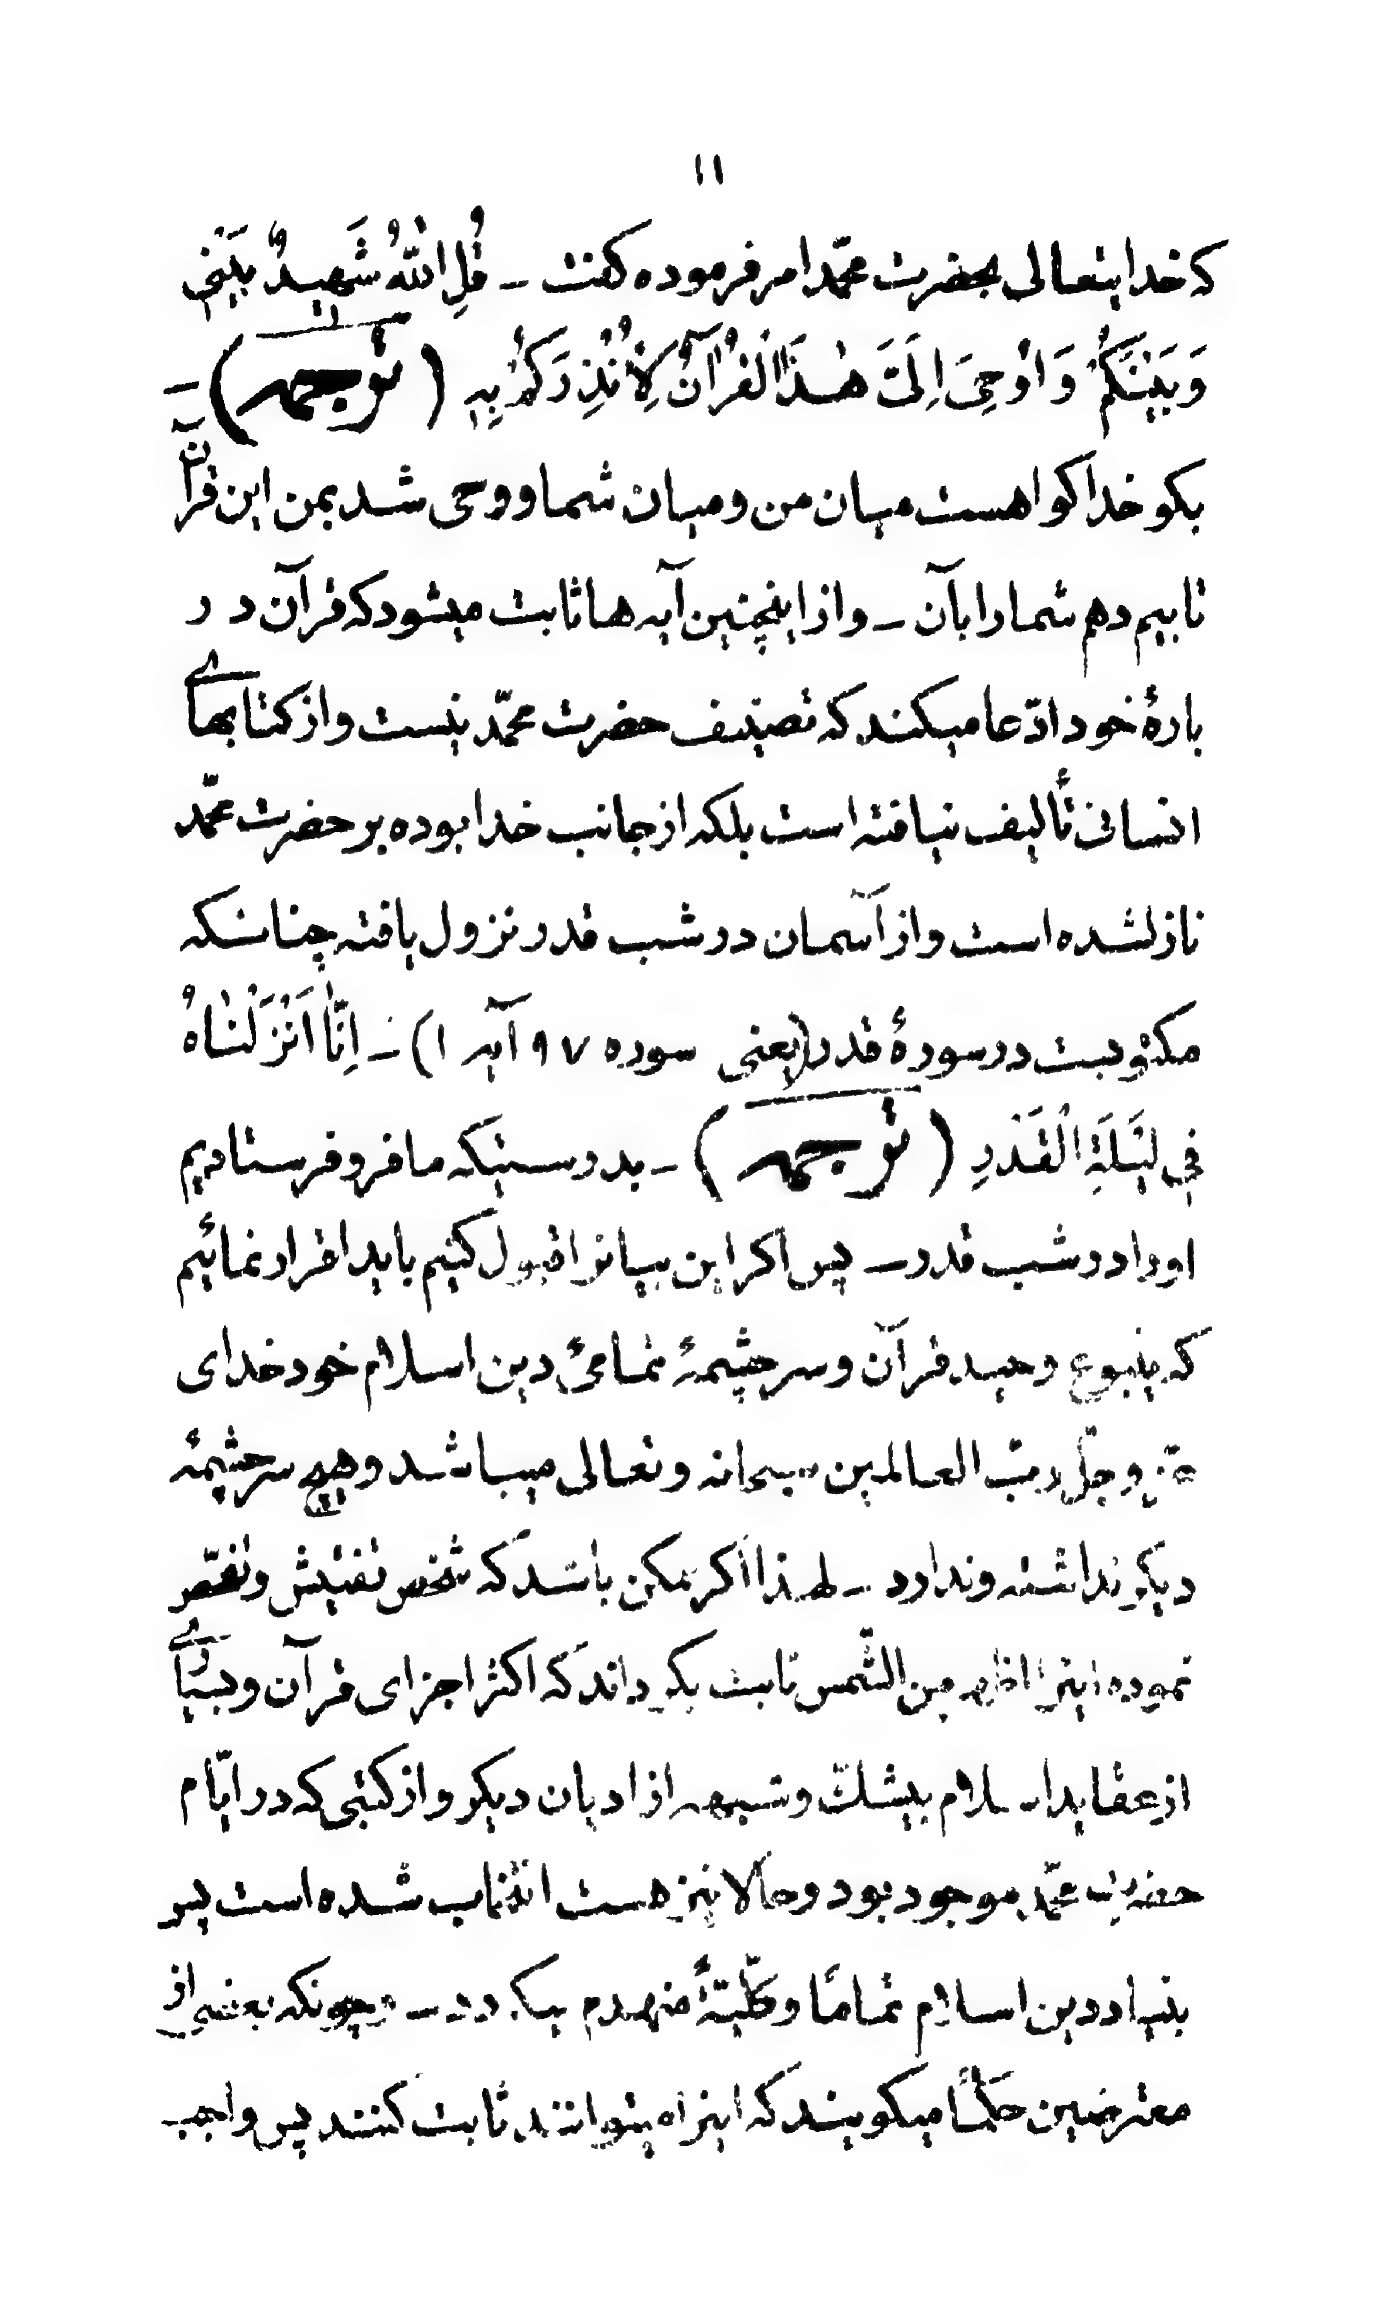 ١١
که خدایتعالی بحضرت محمّد امر فرموده کفت ــ قُلِ اللّٰهُ شَهِیدٌ بَیْنِی
وَبَیْنَکُمْ وَاُوحِیَ اِلَیَّ هٰذَا الْقُرْآنُ لِاُنْذِرَکُمْ بِهِ (ترجمه) ــ
بکو خدا کواهست میان من و میان شما و وحی شد بمن این قرآن
تا بیم دهم شما را بآن ــ و از اینچنین آیه ها ثابت میشود که قرآن در
بارهٔ خود ادّعا میکند که تصنیف حضرت محمّد نیست و از کتابهای
انسانی تألیف نیافته است بلکه از جانب خدا بوده بر حضرت محمّد
نازلشده است و از آسمان در شب قدر نزول یافته چنانکه
مکتوبست در سورهٔ قدر (یعنی سوره ٩٧ آیه ١) ــ اِنَّا اَنْزَلْنَاهُ
فِی لَیْلَةِ الْقَدْرِ (ترجمه) ــ بدرستیکه ما فرو فرستادیم
او را در شب قدر ــ پس اکر این بیانرا قبول کنیم باید اقرار نمائیم
که ینبوع وحید قرآن و سرچشمهٔ تمامیٔ دین اسلام خود خدای
عزّ و جلّ ربّ العالمین سبحانه و تعالی میباشد و هیچ سرچشمهٔ
دیکر نداشته و ندارد ــ لهذا اکر ممکن باشد که شخص تفتیش و تفحّص
نموده اینرا اظهر من الشّمس ثابت بکرداند که اکثر اجزای قرآن و بسیاری
از عقاید اسلام بیشکّ و شبهه از ادیان دیکر و از کتبی که در ایّام
حضرت محمّد موجود بود و حالا نیز هست اقتباس شده است پس
بنیاد دین اسلام تمامًا و کلّیّةً منهدم میکردد ــ و چونکه بعضی از
معترضین حکمًا میکویند که اینرا میتوانند ثابت کنند پس واجب